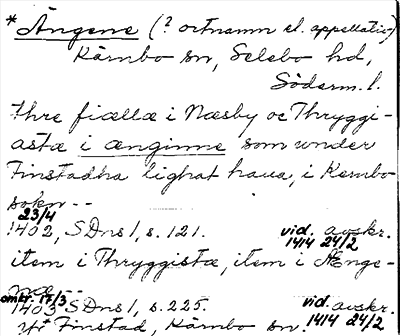 * Ängene (? ortnamn el. appellativ)
Kärnbo sn, Selebo hd,
Söderm. l.
thre fiællæ i Næsby oc Thryggi-
astæ i ænginne som under
Finstadha lighat haua, i Kernbo
sokn --
23/4
1402, SDns 1, s. 121. vid. avskr.
1414 24/2
item i Thryggistæ, item i Ænge-
næ --
omkr. 17/3
1403 SDns 1, s. 225. vid. avskr.
Finstad, Kärnbo sn. 1414 24/2